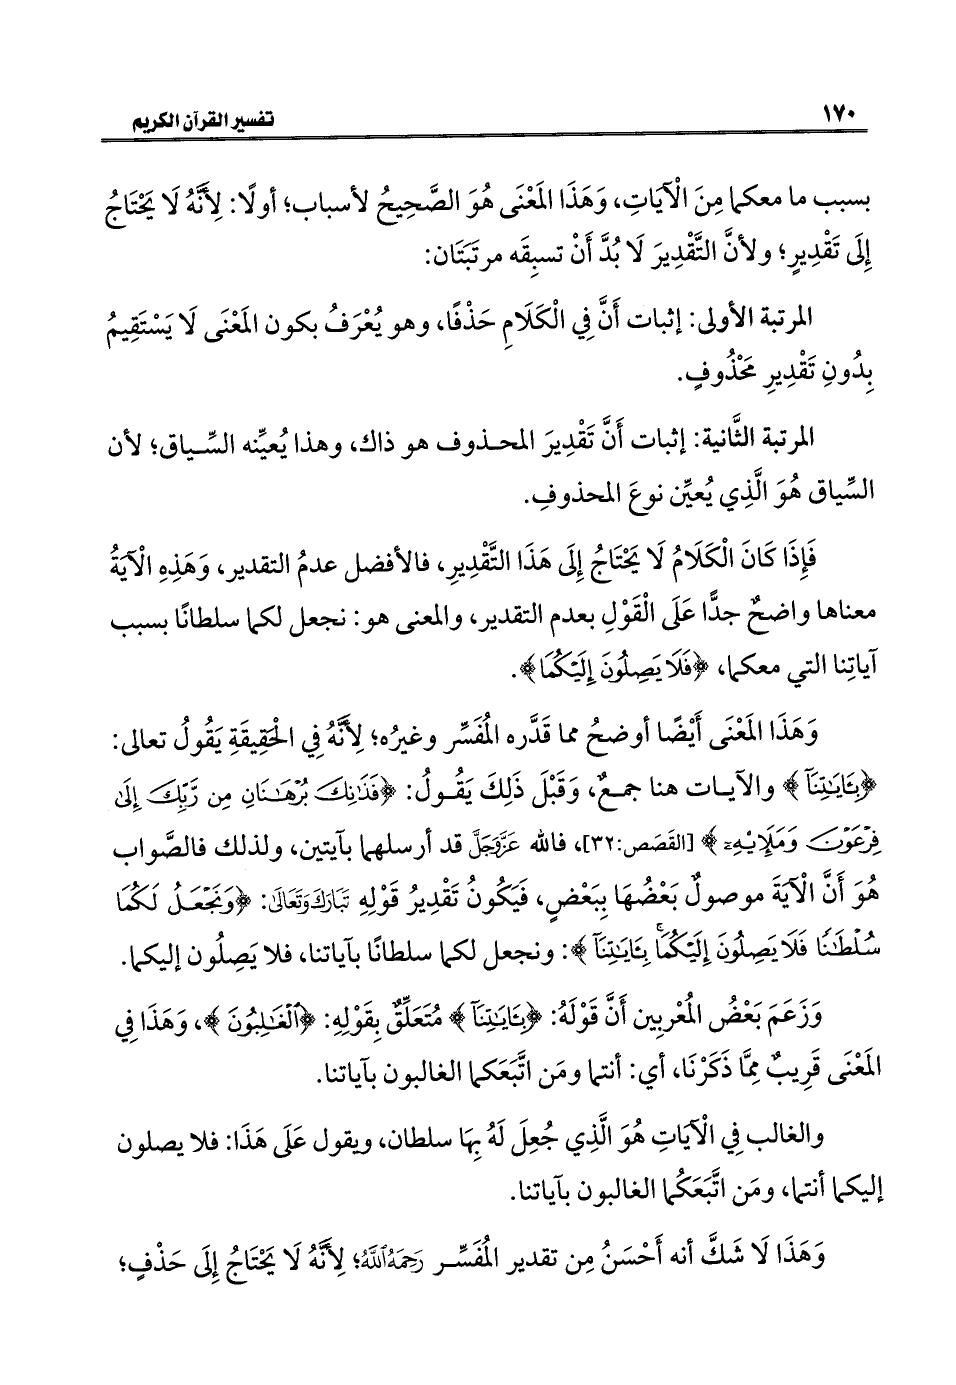 ١٧٠
تفسير القرآن الكريم
بسبب ما معكما مِنَ الْآيَاتِ، وَهَذَا المَعْنَى هُوَ الصَّحِيحُ لأسباب؛ أولًا: لِأَنَّهُ لَا يَحْتَاجُ
إِلَى تَقْدِيرٍ؛ ولأنَّ التَّقْدِيرَ لَا بُدَّ أَنْ تسبِقَه مرتَبَتَان:
المرتبة الأولى: إثبات أَنَّ فِي الْكَلَامِ حَذْفًا، وهو يُعْرَفُ بكون المَعْنَى لَا يَسْتَقِيمُ
بِدُونِ تَقْدِيرِ مَحْذُوفٍ.
المرتبة الثَّانية: إثبات أَنَّ تَقْدِيرَ المحذوف هو ذاك، وهذا يُعيِّنه السِّياق؛ لأن
السِّياق هُوَ الَّذِي يُعيِّن نوعَ المحذوفِ.
فَإِذَا كَانَ الْكَلَامُ لَا يَحْتَاجُ إِلَى هَذَا التَّقْدِيرِ، فالأفضل عدمُ التقدير، وَهَذِهِ الْآيَةُ
معناها واضحٌ جدًّا عَلَى الْقَوْلِ بعدم التقدير، والمعنى هو: نجعل لكما سلطانًا بسبب
آياتِنا التي معكما، ﴿فَلَا يَصِلُونَ إِلَيْكُمَا﴾.
وَهَذَا المَعْنَى أَيْضًا أوضحُ مما قدَّره المُفَسِّر وغيرُه؛ لِأَنَّهُ فِي الْحَقِيقَةِ يَقُولُ تعالى:
﴿بِـَٔايَـٰتِنَآ﴾ والآيات هنا جمعٌ، وَقَبْلَ ذَلِكَ يَقُولُ: ﴿فَذَٰنِكَ بُرْهَـٰنَانِ مِن رَّبِّكَ إِلَىٰ
فِرْعَوْنَ وَمَلَإِيْهِۦ﴾ [القَصَص:٣٢]، فالله عَزَّوَجَلَّ قد أرسلهما بآيتين، ولذلك فالصَّواب
هُوَ أَنَّ الْآيَةَ موصولٌ بَعْضُهَا بِبَعْضٍ، فَيَكُونُ تَقْدِيرُ قَوْلِهِ تَبَارَكَ وَتَعَالَىٰ: ﴿وَنَجْعَلُ لَكُمَا
سُلْطَـٰنًا فَلَا يَصِلُونَ إِلَيْكُمَا ۚ بِـَٔايَـٰتِنَآ﴾: ونجعل لكما سلطانًا بآياتنا، فلا يَصِلُون إليكما.
وَزَعَمَ بَعْضُ المُعْرِبِين أَنَّ قَوْلَهُ: ﴿بِـَٔايَـٰتِنَآ﴾ مُتَعَلِّقٌ بِقَوْلِهِ: ﴿ٱلْغَـٰلِبُونَ﴾، وَهَذَا فِي
المَعْنَى قَرِيبٌ مِمَّا ذَكَرْنَا، أي: أنتما ومَن اتَّبَعَكما الغالبون بآياتنا.
والغالب فِي الْآيَاتِ هُوَ الَّذِي جُعِلَ لَهُ بِهَا سلطان، ويقول عَلَى هَذَا: فلا يصلون
إليكما أنتما، ومَن اتَّبَعَكُما الغالبون بآياتنا.
وَهَذَا لَا شَكَّ أنه أَحْسَنُ مِن تقدير المُفَسِّر رَحِمَهُ ٱللَّهُ؛ لِأَنَّهُ لَا يَحْتَاجُ إِلَى حَذْفٍ؛